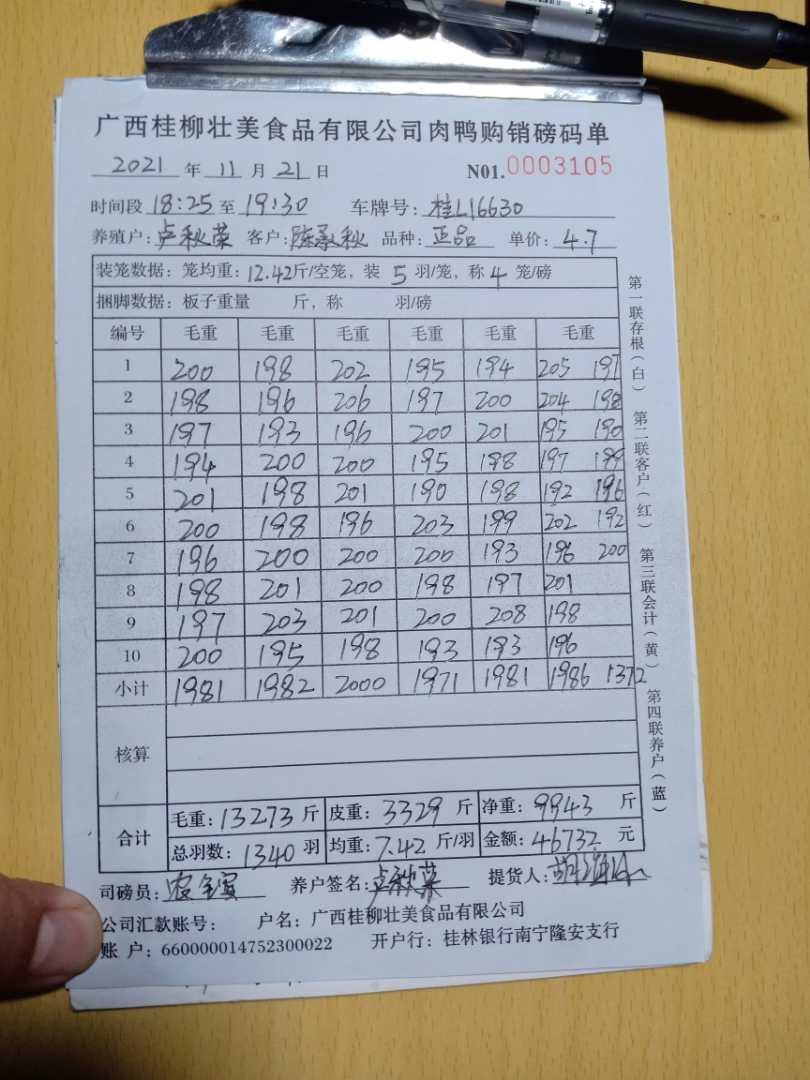 广西桂柳壮美食品有限公司肉鸭购销磅码单
2021 年 11 月 21 日 N01.0003105
时间段 18:25 至 19:30 车牌号: 桂L16630
养殖户: 卢秋荣 客户: 陈承秋 品种: 正品 单价: 4.7
装笼数据: 笼均重: 12.42斤/空笼, 装 5 羽/笼, 称 4 笼/磅
捆脚数据: 板子重量 斤, 称 羽/磅
编号 毛重 毛重 毛重 毛重 毛重 毛重
1 200 198 202 195 194 205 197
2 198 196 206 197 200 204 198
3 197 193 196 200 201 195 190
4 194 200 200 195 198 197 199
5 201 198 201 190 198 192 196
6 200 198 196 203 199 202 192
7 196 200 200 200 193 196 200
8 198 201 200 198 197 201
9 197 203 201 200 208 198
10 200 195 198 193 193 196
小计 1981 1982 2000 1971 1981 1986 1372
核算
合计 毛重: 13273 斤 皮重: 3329 斤 净重: 9943 斤
总羽数: 1340 羽 均重: 7.42 斤/羽 金额: 46732 元
司磅员: 养户签名: 卢秋荣 提货人:
公司汇款账号: 户名: 广西桂柳壮美食品有限公司
账 户: 660000014752300022 开户行: 桂林银行南宁隆安支行
第一联存根(白)
第二联客户(红)
第三联会计(黄)
第四联养户(蓝)